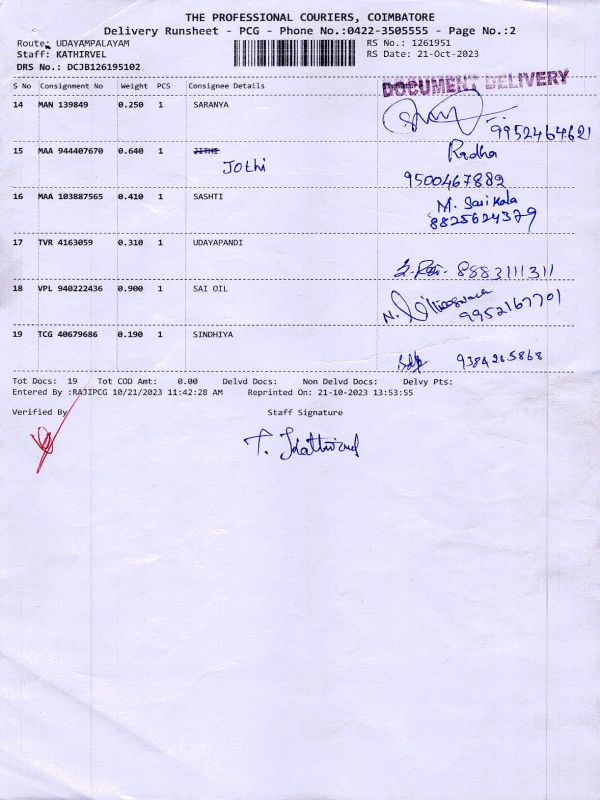 THE PROFESSIONAL COURIERS, COIMBATORE
Delivery Runsheet - PCG - Phone No.:0422-3505555 - Page No.:2
Route: UDAYAMPALAYAM RS No.: 1261951
Staff: KATHIRVEL RS Date: 21-Oct-2023
DRS No.: DCJB126195102
DOCUMENT DELIVERY
S No Consignment No Weight PCS Consignee Details
14 MAN 139849 0.250 1 SARANYA
9952464621
15 MAA 944407670 0.640 1 JITHI Radha
Jothi
9500467882
16 MAA 103887565 0.410 1 SASHTI M. Sasi Kala
8825624379
17 TVR 4163059 0.310 1 UDAYAPANDI
8883111311
18 VPL 940222436 0.900 1 SAI OIL
N. 9952167701
19 TCG 40679686 0.190 1 SINDHIYA
9384265868
Tot Docs: 19 Tot COD Amt: 0.00 Delvd Docs: Non Delvd Docs: Delvy Pts:
Entered By :RAJIPCG 10/21/2023 11:42:28 AM Reprinted On: 21-10-2023 13:53:55
Verified By Staff Signature